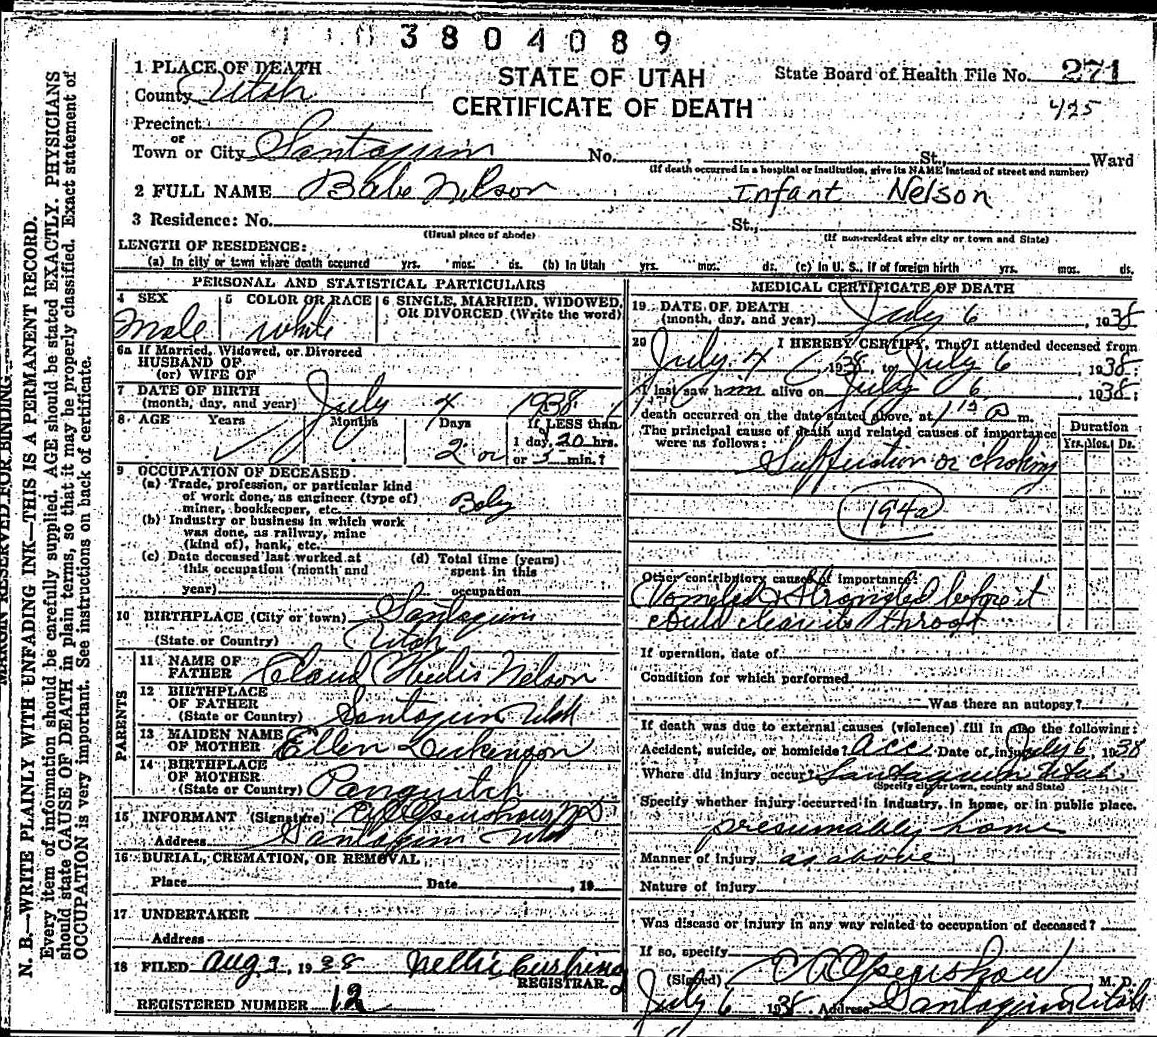 3804089
1 PLACE OF DEATH
STATE OF UTAH
State Board of Health File No. 271
County Utah
CERTIFICATE OF DEATH
425
Precinct
or
Town or City Santaquin No. , St., Ward
(If death occurred in a hospital or institution, give its NAME instead of street and number)
2 FULL NAME Babe Nelson Infant Nelson
3 Residence: No. St.,
(Usual place of abode) (If non-resident give city or town and State)
LENGTH OF RESIDENCE:
(a) In city or town where death occurred yrs. mos. ds. (b) In Utah yrs. mos. ds. (c) In U. S., if of foreign birth yrs. mos. ds.
PERSONAL AND STATISTICAL PARTICULARS
4 SEX 5 COLOR OR RACE 6 SINGLE, MARRIED, WIDOWED,
OR DIVORCED (Write the word)
Male white
6a If Married, Widowed, or Divorced
HUSBAND OF
(or) WIFE OF
7 DATE OF BIRTH
(month, day, and year) July 4 1938
8 AGE Years Months Days If LESS than
2 or 1 day, 20 hrs.
or 5 min.?
9 OCCUPATION OF DECEASED
(a) Trade, profession, or particular kind
of work done, as engineer (type of)
miner, bookkeeper, etc. Baby
(b) Industry or business in which work
was done, as railway, mine
(kind of), bank, etc.
(c) Date deceased last worked at (d) Total time (years)
this occupation (month and spent in this
year) occupation
10 BIRTHPLACE (City or town) Santaquin
(State or Country) Utah
PARENTS
11 NAME OF
FATHER Claud Nelson
12 BIRTHPLACE
OF FATHER
(State or Country) Santaquin Utah
13 MAIDEN NAME
OF MOTHER Ellen Dickenson
14 BIRTHPLACE
OF MOTHER
(State or Country) Panguitch
15 INFORMANT (Signature) Openshaw MD
Address Santaquin Utah
16 BURIAL, CREMATION, OR REMOVAL
Place Date , 19
17 UNDERTAKER
Address
18 FILED Aug 3, 1938 Nellie Cushing
REGISTRAR.
REGISTERED NUMBER 12
MEDICAL CERTIFICATE OF DEATH
19 DATE OF DEATH
(month, day, and year) July 6, 1938
20 I HEREBY CERTIFY, That I attended deceased from
July 4, 1938, to July 6, 1938;
I last saw him alive on July 6, 1938;
death occurred on the date stated above, at 1 15 a m.
The principal cause of death and related causes of importance
were as follows:
Duration
Yrs. Mos. Ds.
Suffication or choking
194a
Other contributory causes of importance:
Vomited & strangled before it
could clear its throat
If operation, date of
Condition for which performed
Was there an autopsy?
If death was due to external causes (violence) fill in also the following:
Accident, suicide, or homicide? Acc Date of injury July 6, 1938
Where did injury occur? Santaquin Utah
(Specify city or town, county and State)
Specify whether injury occurred in industry, in home, or in public place.
presumably home
Manner of injury as above
Nature of injury
Was disease or injury in any way related to occupation of deceased?
If so, specify
(Signed) Openshaw M. D.
July 6 1938 Address Santaquin Utah
MARGIN RESERVED FOR BINDING
N. B.—WRITE PLAINLY WITH UNFADING INK—THIS IS A PERMANENT RECORD.
Every item of information should be carefully supplied. AGE should be stated EXACTLY. PHYSICIANS
should state CAUSE OF DEATH in plain terms, so that it may be properly classified. Exact statement of
OCCUPATION is very important. See instructions on back of certificate.